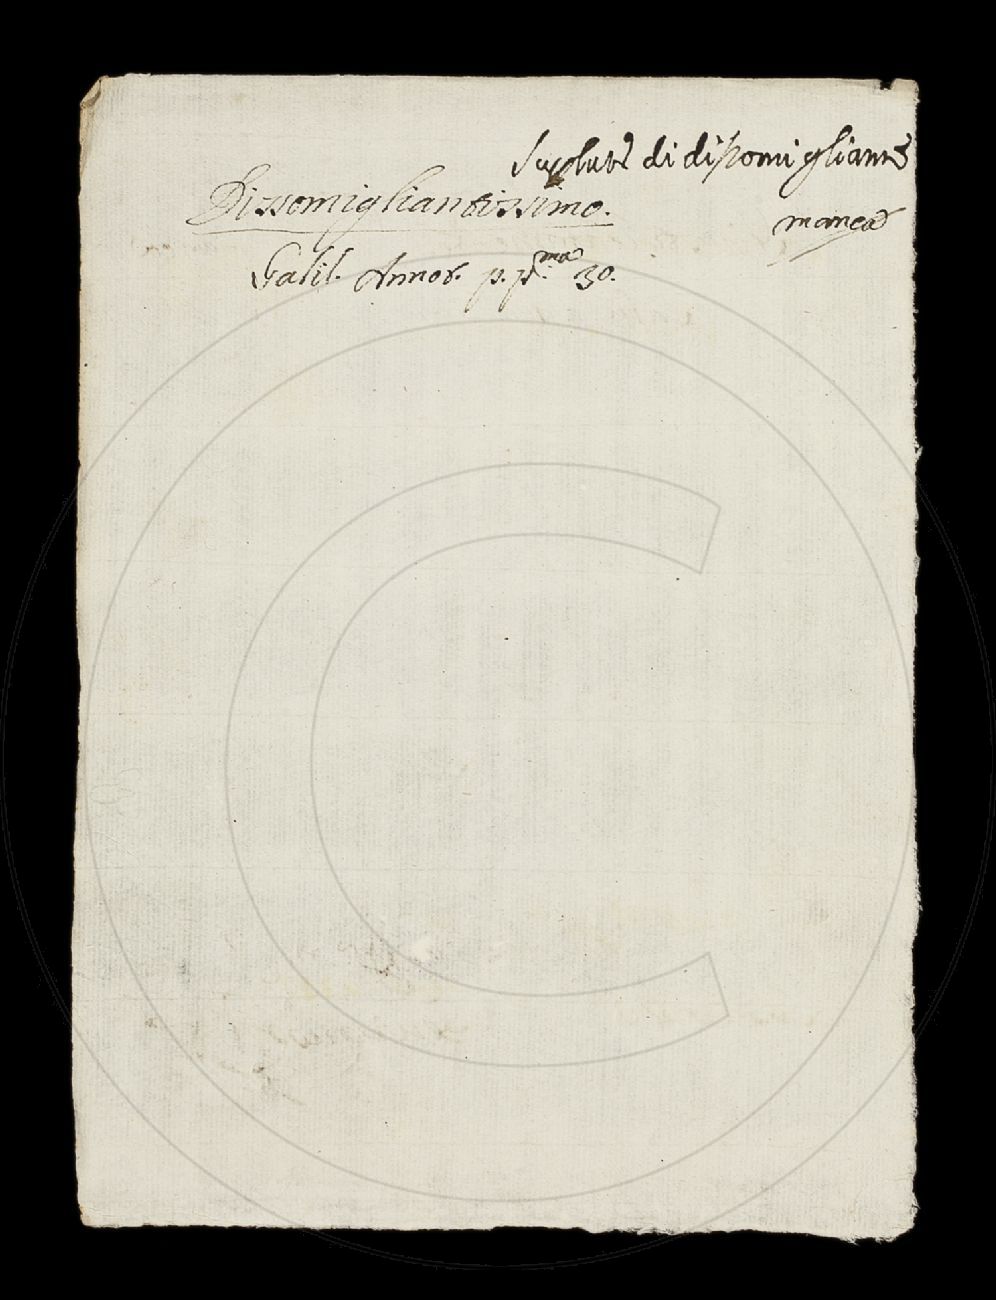 Superlativo di dissomigliante
manca
Dissomigliantissimo.
Galil. Annot. p. p.ma 30.